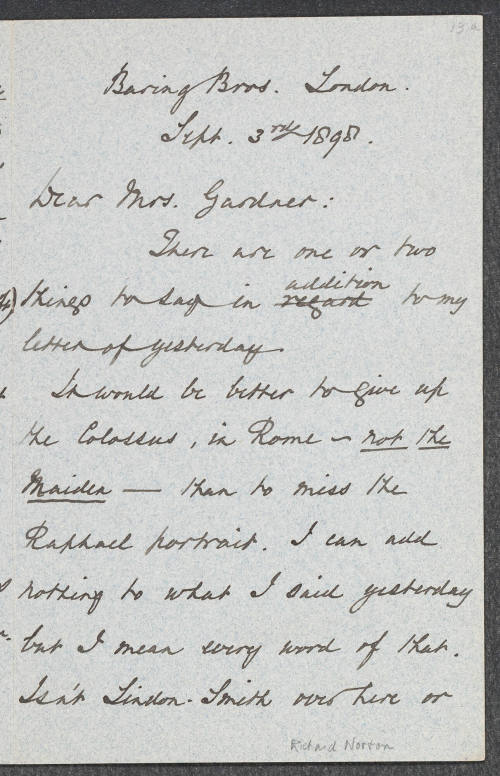 13a
Baring Bros. London.
Sept. 3rd 1898.
Dear Mrs. Gardner:
There are one or two
addition
things to say in regard to my
letter of yesterday.
It would be better to give up
the Colossus, in Rome — not the
Maiden — than to miss the
Raphael portrait. I can add
nothing to what I said yesterday
but I mean every word of that.
Isn't Lindon-Smith over here or
Richard Norton